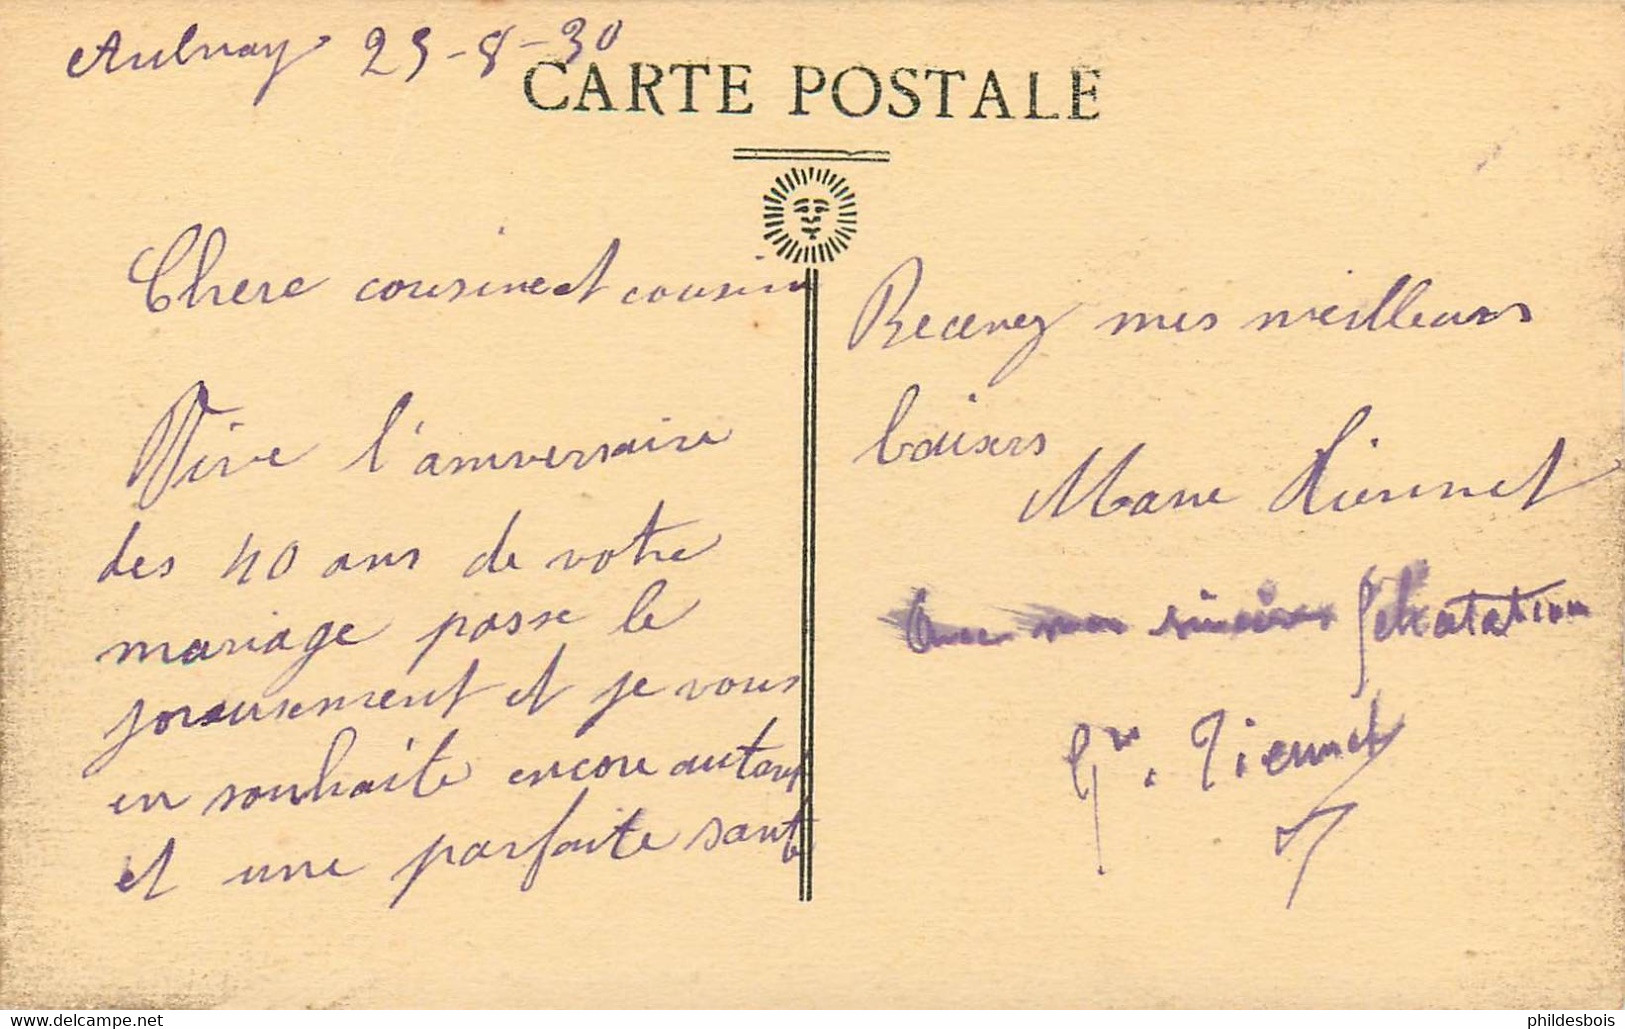 Aulnay 25-8-30
CARTE POSTALE
Chere cousine et cousin
Vive l'anniversaire
des 40 ans de votre
mariage passe le
joyeusement et je vous
en souhaite encore autant
et une parfaite santé
Recevez mes meilleurs
baisers
Marie
Avec mes sincères felicatation
phildesbois
www.delcampe.net